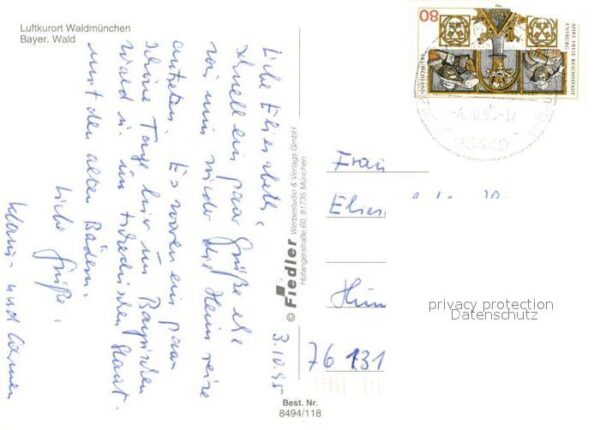 Luftkurort Waldmünchen
Bayer. Wald
3.10.95
Liebe Elisabeth,
schnell ein paar Grüße ehe
wir nun wieder die Heimreise
antreten. Es waren ein paar
schöne Tage hier im Bayrischen
Wald u. im tschechischen Staat
mit den alten Bädern.
Liebe Grüße,
Klaus- und
© Fiedler Werbestudio & Verlags GmbH
Hofangerstraße 60, 81735 München
Best. Nr.
8494/118
80
DEUTSCHLAND
Frau
Elise
76 131
privacy protection
Datenschutz